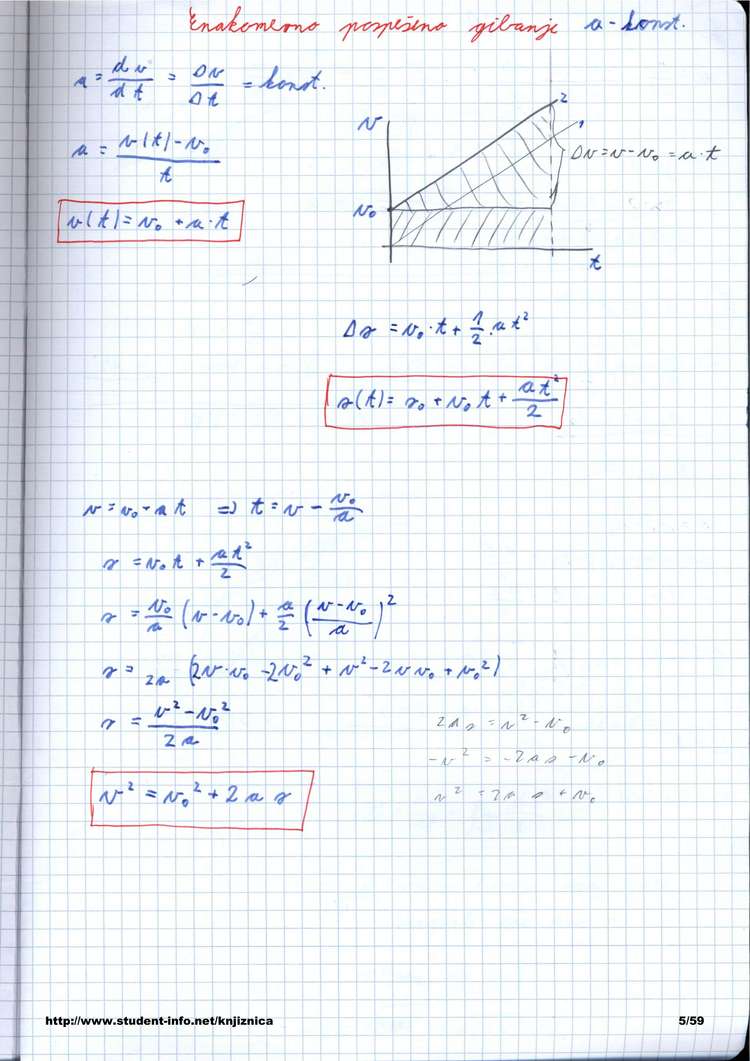 Enakomerno pospešeno gibanje a - konst.
a = dv/dt = Δv/Δt = konst.
a = (v(t) - v₀)/t
v(t) = v₀ + a·t
v
v₀
t
2
1
Δv = v - v₀ = a·t
Δs = v₀·t + 1/2·at²
s(t) = s₀ + v₀t + at²/2
v = v₀ - at ⇒ t = v - v₀/a
s = v₀t + at²/2
s = v₀/a (v - v₀) + a/2 ((v - v₀)/a)²
s = 2a (2v·v₀ - 2v₀² + v² - 2vv₀ + v₀²)
s = (v² - v₀²)/2a
2as = v² - v₀
-v² = -2as - v₀
v² = 2as + v₀
v² = v₀² + 2as
http://www.student-info.net/knjiznica
5/59